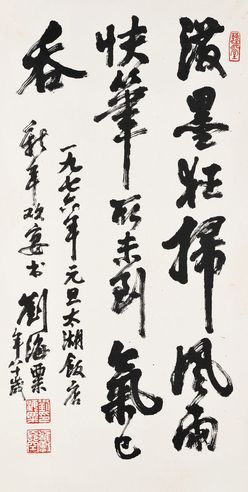 潑墨狂掃風雨
快筆所未到氣已
吞
一九七六年元旦太湖飯店
新年欢宴书
劉海粟
年八十歲